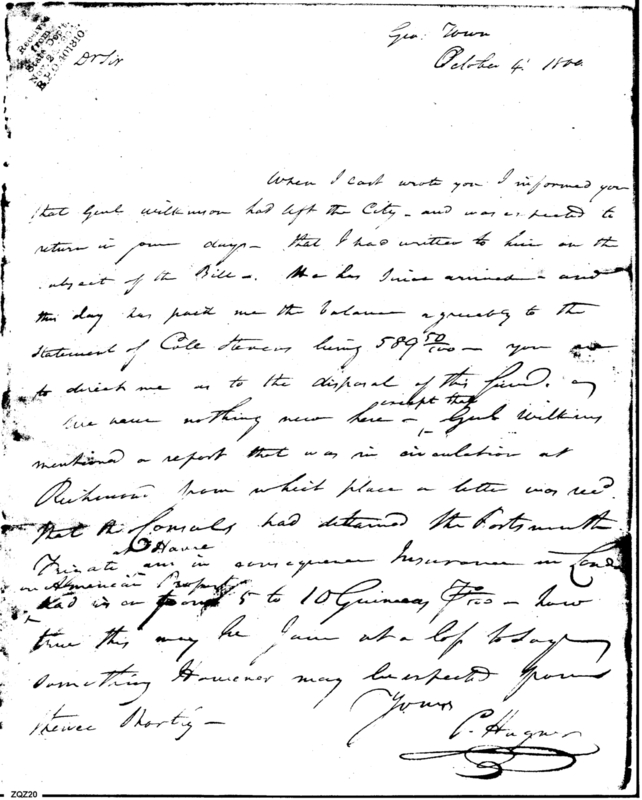 Receive
from
State Dep't.
Nov. 2
B.P.O. 401810.
Geo: Town
October 4. 1800
Dr Sir
When I last wrote you I informed you
that Genl Wilkinson had left the City - and was expected to
return in days - that I had written to him on the
subject of the Bill -. He has since arrived - and
this day has paid me the balance agreeably to the
statement of Colo Stevens being 589 50/100 - you
to direct me as to the disposal of this fund.
We have nothing new here - except that Genl Wilkins
mentioned a report that was in circulation at
Richmond from which place a letter was recd.
that the Consuls had detained the Portsmouth
Frigate at Havre and in consequence Insurance in
on American Property
had from 5 to 10 Guineas - how
true this may be I am at a loss to say
something However may be expected from
thence shortly -
Yours
C. Hugner
ZQZ20